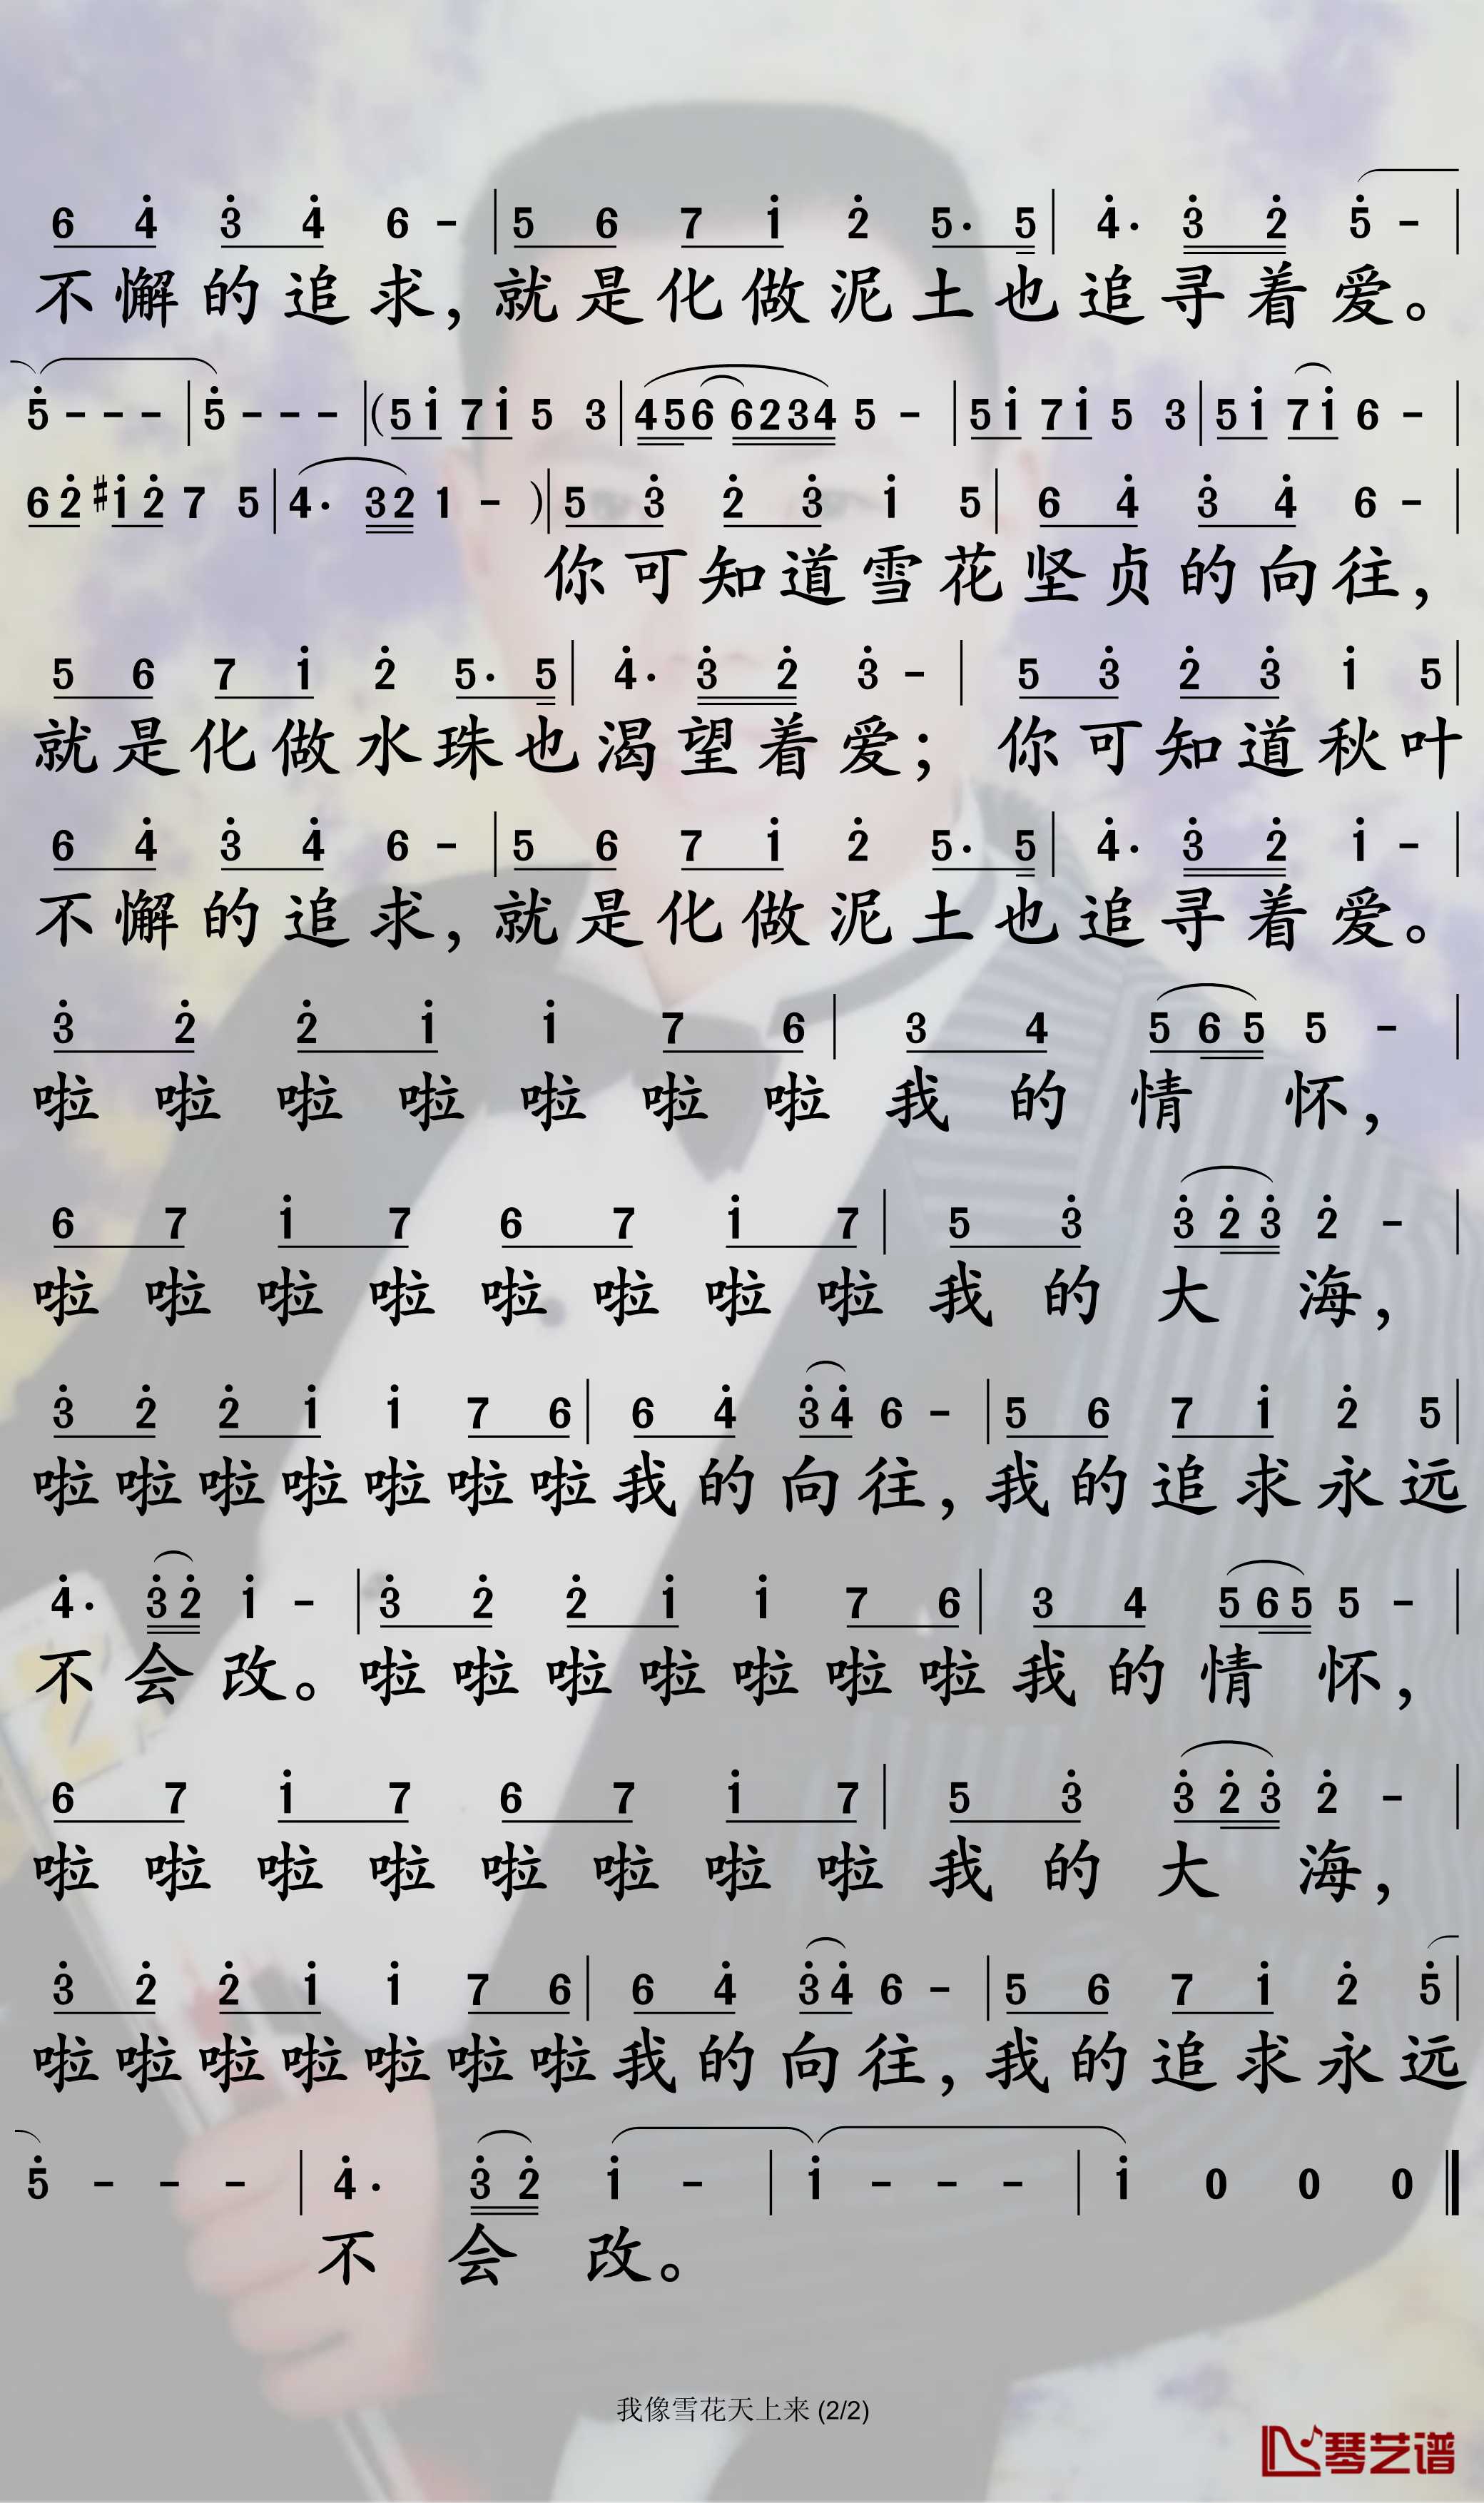 6 4̇ 3̇ 4̇ 6 - | 5 6 7 1̇ 2̇ 5· 5 | 4̇· 3̇ 2̇ 5̇ - |
不懈的追求，就是化做泥土也追寻着爱。
5̇ - - - | 5̇ - - - | (5 1̇ 7 1̇ 5 3 | 4 5 6 6 2 3 4 5 - | 5 1̇ 7 1̇ 5 3 | 5 1̇ 7 1̇ 6 - |
6 2̇ #1̇ 2̇ 7 5 | 4· 3 2 1 - ) | 5 3̇ 2̇ 3̇ 1̇ 5 | 6 4̇ 3̇ 4̇ 6 - |
你可知道雪花坚贞的向往，
5 6 7 1̇ 2̇ 5· 5 | 4̇· 3̇ 2̇ 3̇ - | 5 3̇ 2̇ 3̇ 1̇ 5 |
就是化做水珠也渴望着爱；你可知道秋叶
6 4̇ 3̇ 4̇ 6 - | 5 6 7 1̇ 2̇ 5· 5 | 4̇· 3̇ 2̇ 1̇ - |
不懈的追求，就是化做泥土也追寻着爱。
3̇ 2̇ 2̇ 1̇ 1̇ 7 6 | 3 4 5 6 5 5 - |
啦啦啦啦啦啦啦我的情怀，
6 7 1̇ 7 6 7 1̇ 7 | 5 3̇ 3̇ 2̇ 3̇ 2̇ - |
啦啦啦啦啦啦啦啦我的大海，
3̇ 2̇ 2̇ 1̇ 1̇ 7 6 | 6 4̇ 3̇ 4̇ 6 - | 5 6 7 1̇ 2̇ 5 |
啦啦啦啦啦啦啦我的向往，我的追求永远
4̇· 3̇ 2̇ 1̇ - | 3̇ 2̇ 2̇ 1̇ 1̇ 7 6 | 3 4 5 6 5 5 - |
不会改。啦啦啦啦啦啦啦我的情怀，
6 7 1̇ 7 6 7 1̇ 7 | 5 3̇ 3̇ 2̇ 3̇ 2̇ - |
啦啦啦啦啦啦啦啦我的大海，
3̇ 2̇ 2̇ 1̇ 1̇ 7 6 | 6 4̇ 3̇ 4̇ 6 - | 5 6 7 1̇ 2̇ 5̇ |
啦啦啦啦啦啦啦我的向往，我的追求永远
5̇ - - - | 4̇· 3̇ 2̇ 1̇ - | 1̇ - - - | 1̇ 0 0 0 ‖
不会改。
我像雪花天上来 (2/2)
琴艺谱